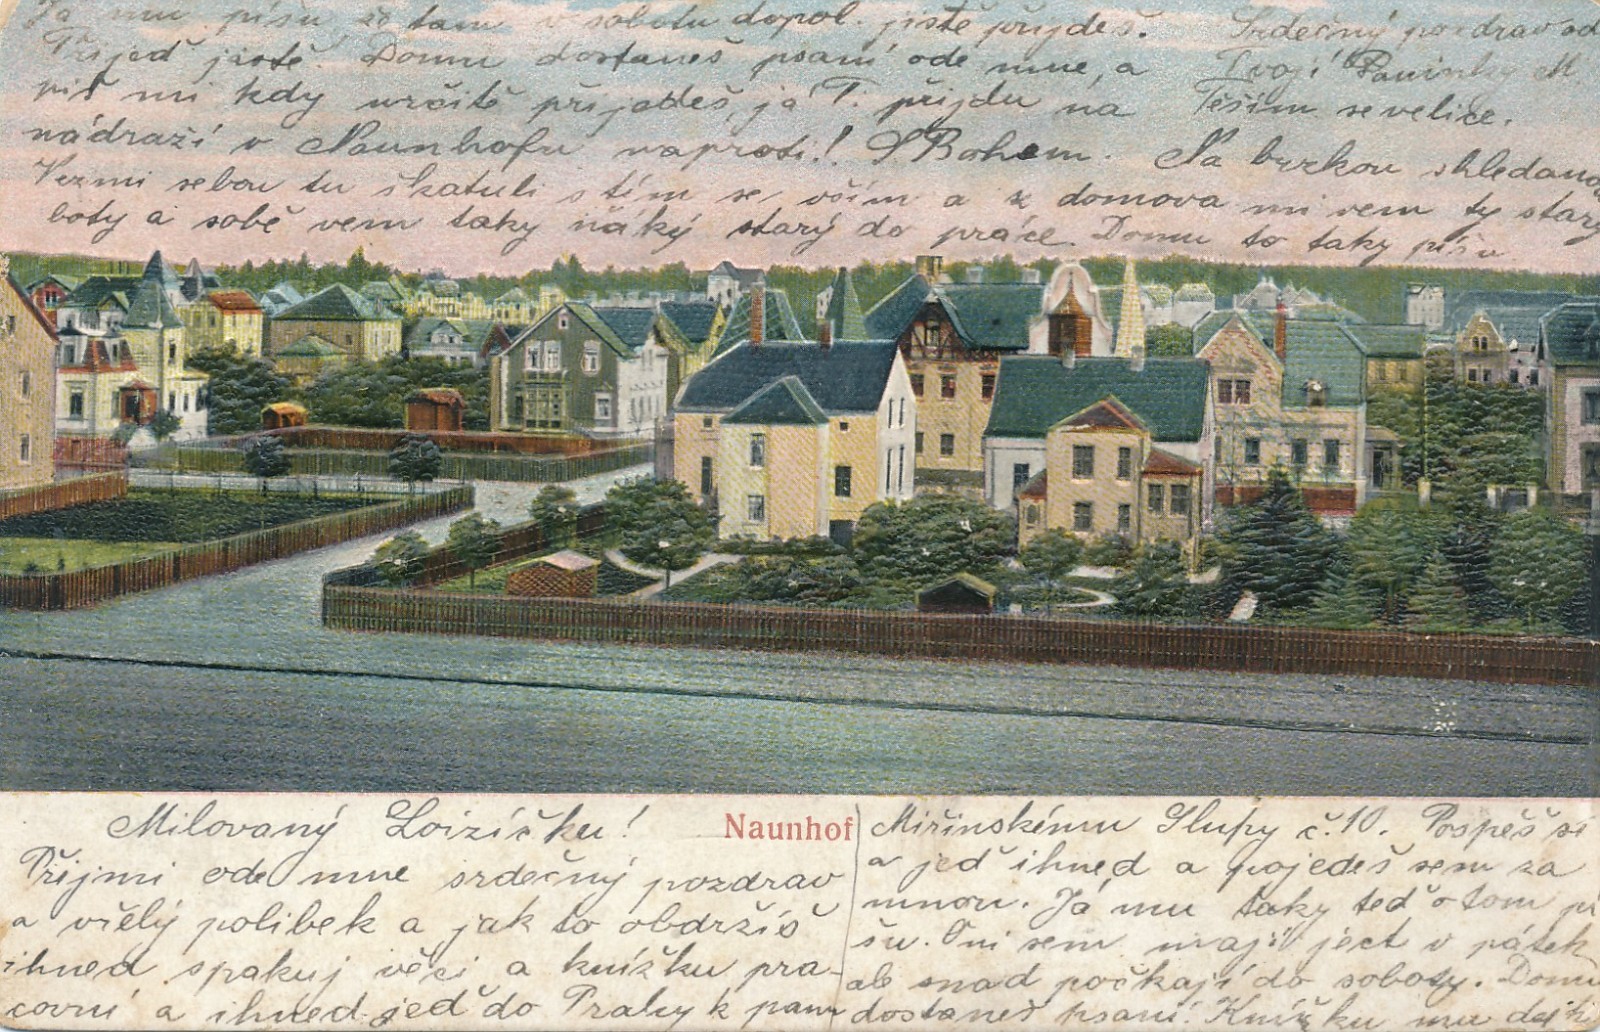 Milovaný Loizíčku!
Přijmi ode mne srdečný pozdrav
a vřelý polibek a jak to obdržíš
ihned spakuj věci a knížku pra-
covní a ihned jeď do Prahy k panu
Naunhof
Miřinskému Slupy č. 10. Pospěš si
a jeď ihned a pojedeš sem za
mnou. Já mu taky teď o tom pí
šu. Oni sem mají ject v pátek
ale snad počkají do soboty. Domu
dostaneš psaní. Knížku mu dej k
Ja mu píšu že tam v sobotu dopol. jistě přijdeš.
Přijeď jistě. Domu dostaneš psaní ode mne, a
piš mi kdy určitě přijedeš, já T. přijdu na
nádraží v Naunhofu naproti! S Bohem.
Srdečný pozdrav od
Tvojí Pavinky M.
Těším se velice.
Na brzkou shledanou
Vezmi sebou tu škatuli s tím se vším a z domova mi vem ty starý
boty a sobě vem taky ňáký starý do práce. Domu to taky píšu.